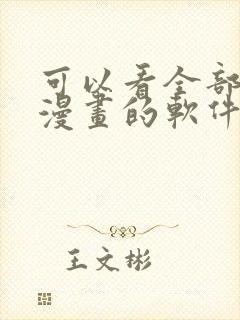 可以看全部
漫畫的軟件
王文彬